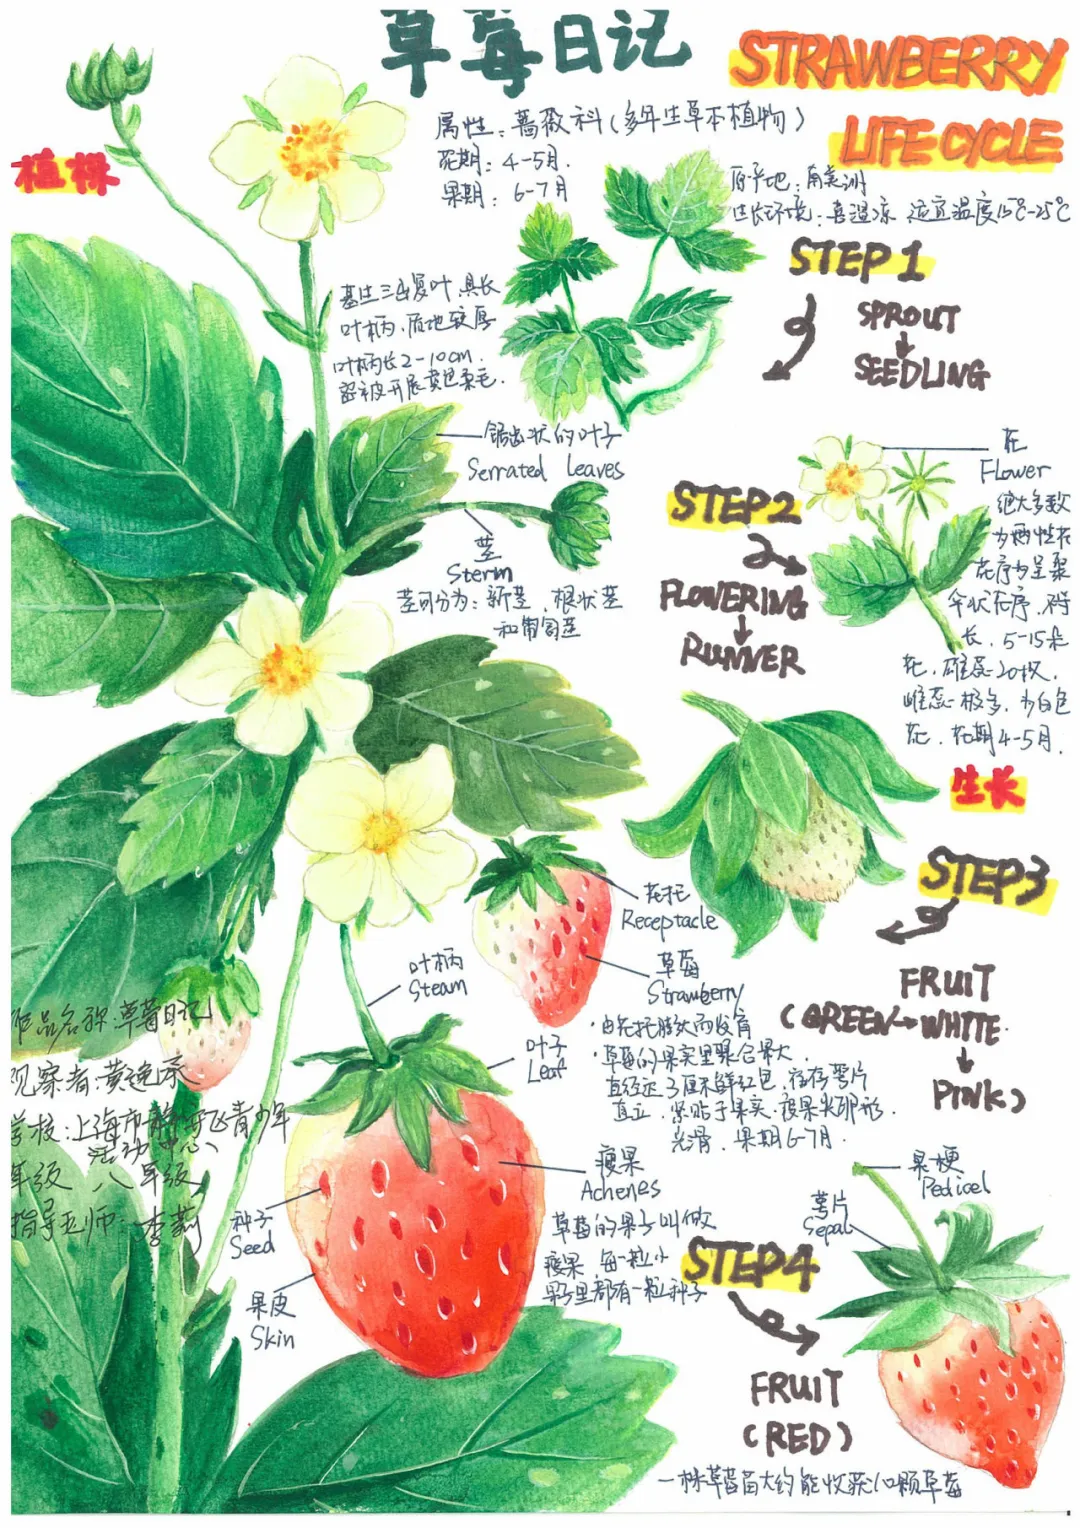 草莓日记
STRAWBERRY
LIFE CYCLE
植株
属性：蔷薇科(多年生草本植物)
花期：4-5月.
果期：6-7月
原产地：南美洲
生长环境：喜温凉 适宜温度15℃-25℃
STEP 1
SPROUT
↓
SEEDLING
基生三出复叶,具长
叶柄,质地较厚
叶柄长2-10cm.
密被开展黄色柔毛.
锯齿状的叶子
Serrated leaves
茎
Sterm
茎可分为：新茎、根状茎
和匍匐茎
STEP2
FLOWERING
↓
RUNNER
花
Flower
绝大多数
为两性花
花序为呈聚
伞状花序,
长、5-15朵
花,雄蕊20枚,
雌蕊极多,为白色
花.花期4-5月.
生长
STEP3
FRUIT
(GREEN→WHITE
↓
PINK)
花托
Receptacle
草莓
Strawberry
·由花托膨大而发育
·草莓的果实呈聚合果大
直径达3厘米鲜红色,宿存萼片
直立,紧贴于果实.瘦果尖卵形.
光滑.果期6-7月.
叶柄
Steam
叶子
Leaf
作品名称:草莓日记
观察者:黄逸
学校:上海市静安区青少年
活动中心
年级 八年级
指导老师:李莉
种子
Seed
果皮
Skin
瘦果
Achenes
草莓的果子叫做
瘦果 每一粒小
果子里都有一粒种子
STEP4
FRUIT
(RED)
萼片
Sepal
果梗
Pedicel
一株草莓苗大约能收获10颗草莓